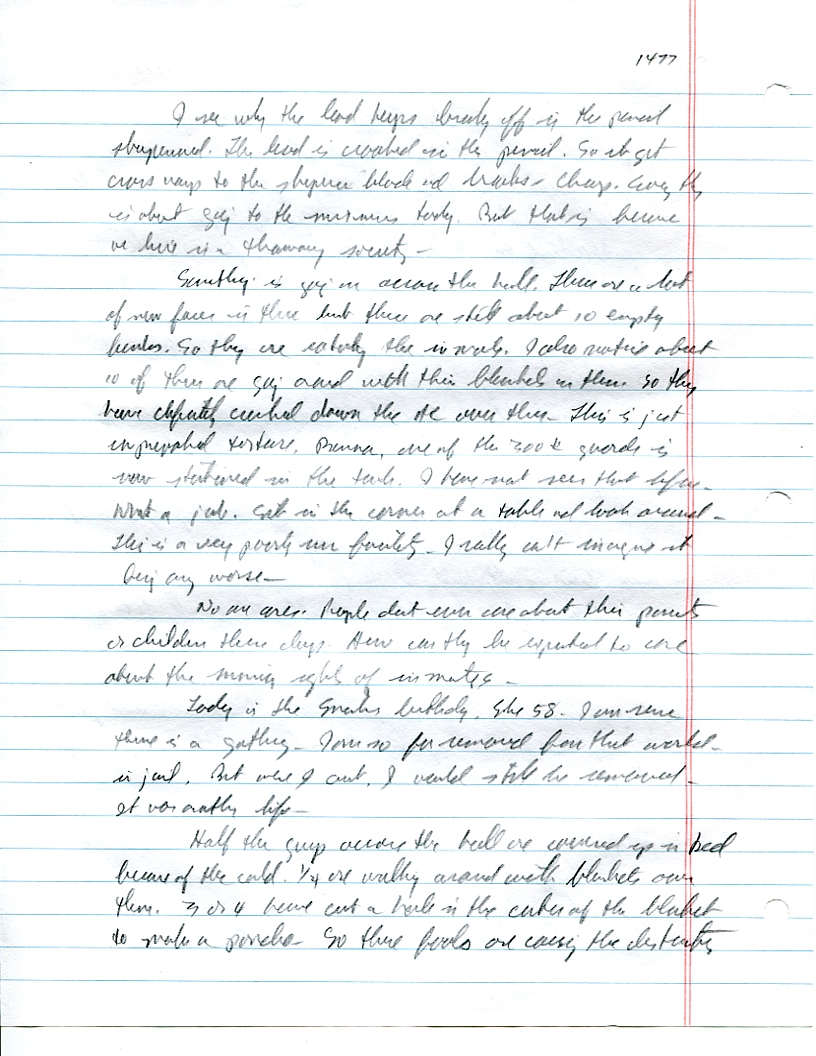 1477
I see why the lead keeps breaky off in the pencil
sharpenned. The lead is crooked in the pencil. So it get
cross ways to the sharpener blade and breaks. Cheap. Every thing
is about going to the minimums today. But that is because
we live in a thowaway society -
Somethig is going on across the hall. There are a lot
of new faces in there but there are still about 10 empty
bunks. So they are the inmate. I also notice about
10 of them are going around with their blankets on them. So they
have cranked down the AC over there. This is just
torture. one of the guards is
now stationed in the tank. I have not seen that before.
What a job. Sit in the corner at a table and look around -
This is a very poorly run facility - I really can't imagine it
being any worse -
No one cares. People dont even care about their parents
or children these days. How can they be expected to care
about the rights of inmates -
Today is the birthday. She 58. I am sure
there is a gathing - I am so far removed from that world -
in jail. But were I out, I would still be removed -
It was another life -
Half the guys across the hall are covered up in bed
because of the cold. 1/4 are walking around with blankets over
them. 3 or 4 have cut a hole in the center of the blanket
to make a poncho - So these fools are causing the